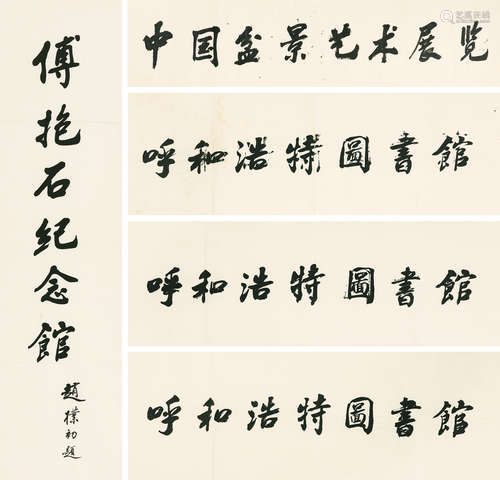 傅抱石纪念馆
趙樸初題
中国盆景艺术展览
呼和浩特圖書館
呼和浩特圖書館
呼和浩特圖書館